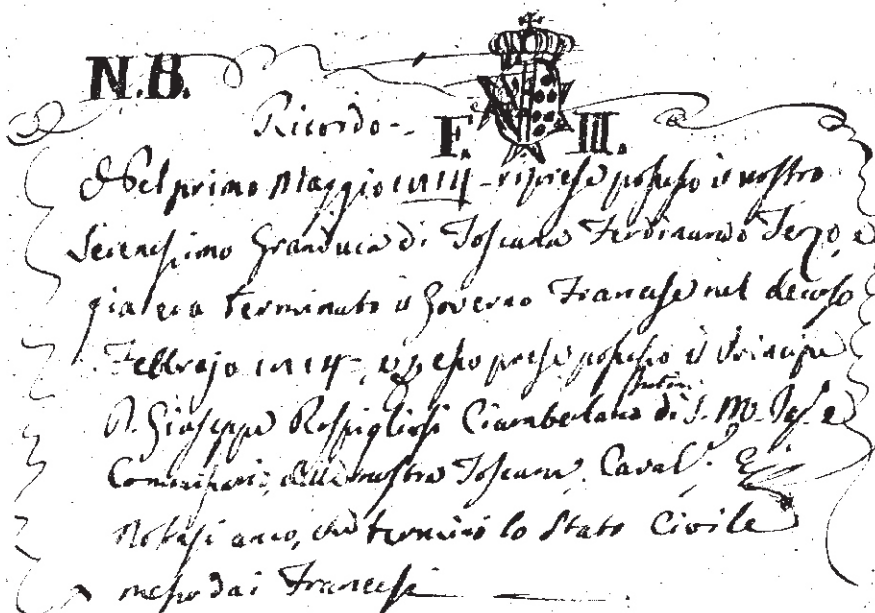 N.B.
Ricordo -
F. III.
Del primo Maggio 1814 - riprese possesso il nostro
Serenissimo Granduca di Toscana Ferdinando Terzo, e
gia era terminato il Governo Francese nel decorso
Febbrajo 1814 -, e prese possesso il Principe
D. Giuseppe Rospigliosi Ciamberlano di S. M.
Commissario della nostra Toscana. Caval.
Notisi anco, che terminò lo Stato Civile
messo dai Francesi